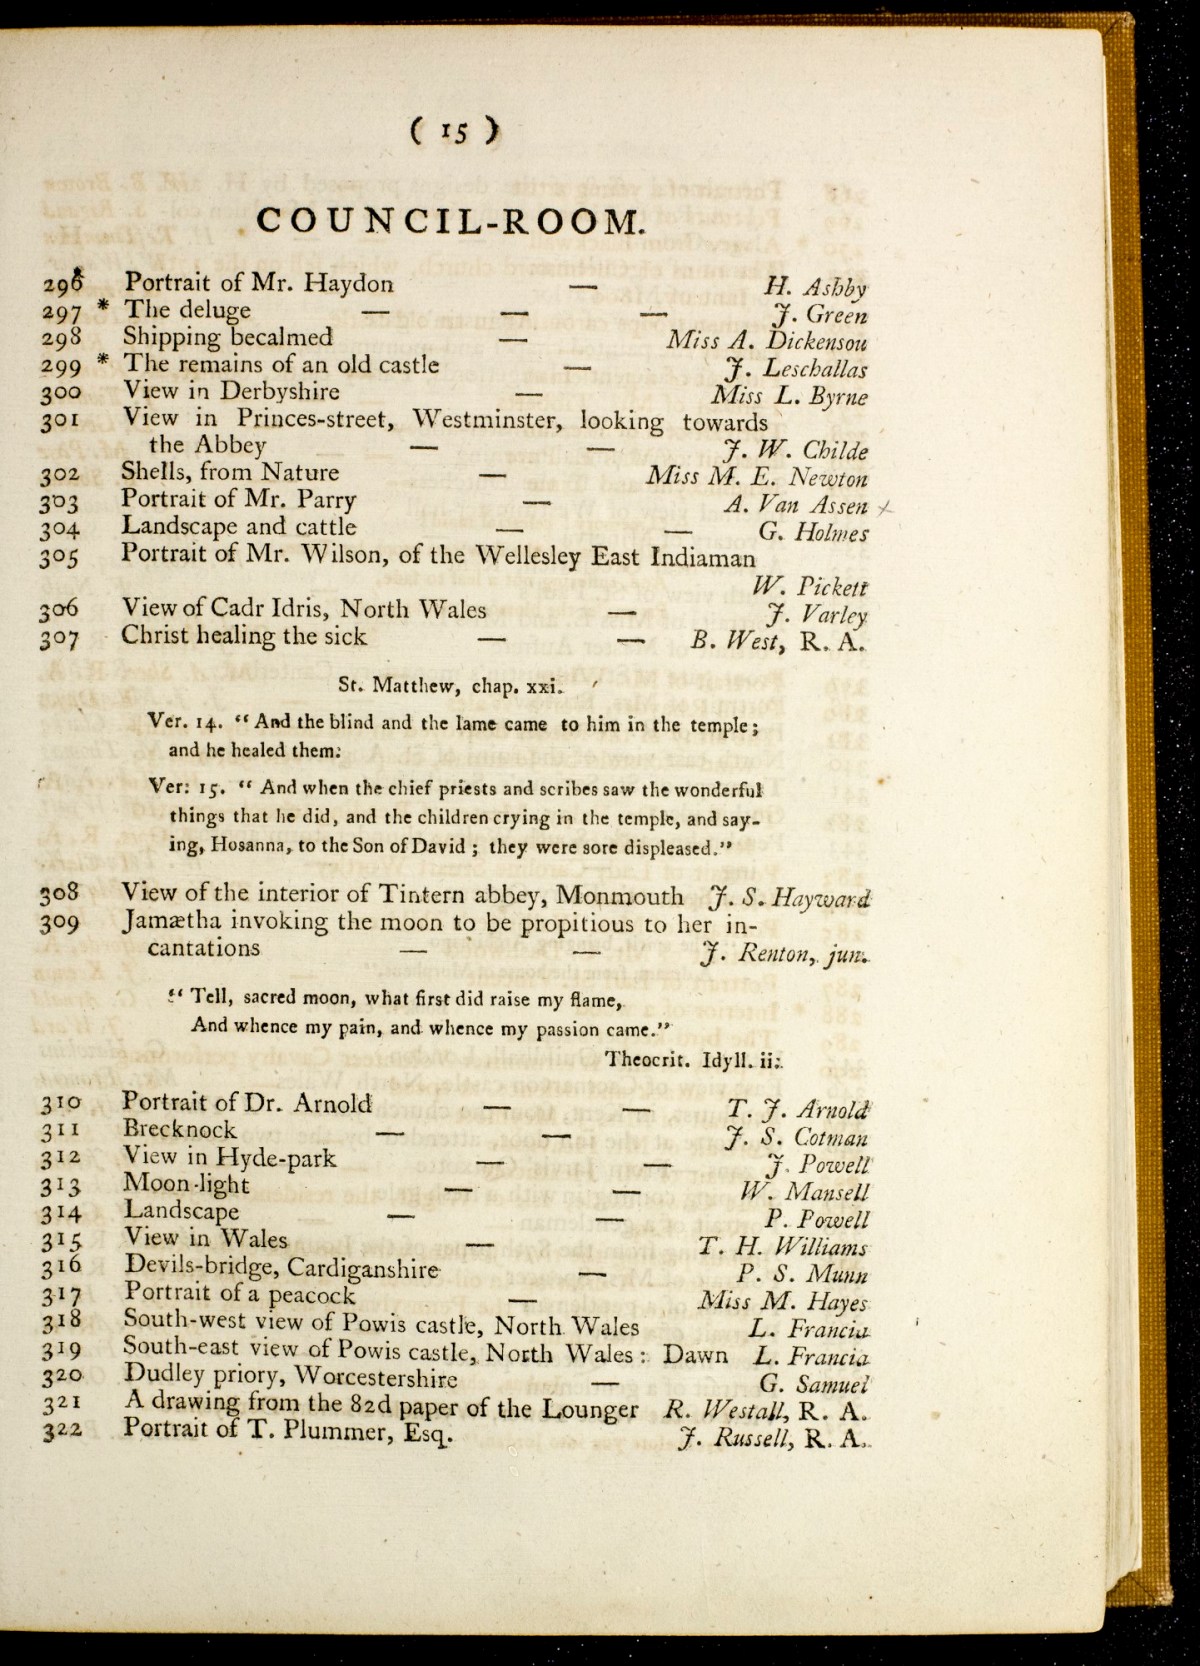 ( 15 )
COUNCIL-ROOM.
296 Portrait of Mr. Haydon — H. Ashby
297 * The deluge — — — J. Green
298 Shipping becalmed — Miss A. Dickenson
299 * The remains of an old castle — J. Leschallas
300 View in Derbyshire — Miss L. Byrne
301 View in Princes-street, Westminster, looking towards
the Abbey — — J. W. Childe
302 Shells, from Nature — Miss M. E. Newton
303 Portrait of Mr. Parry — A. Van Assen ×
304 Landscape and cattle — — G. Holmes
305 Portrait of Mr. Wilson, of the Wellesley East Indiaman
W. Pickett
306 View of Cadr Idris, North Wales — J. Varley
307 Christ healing the sick — — B. West, R. A.
St. Matthew, chap. xxi.
Ver. 14. “ And the blind and the lame came to him in the temple;
and he healed them:
Ver: 15. “ And when the chief priests and scribes saw the wonderful
things that he did, and the children crying in the temple, and say-
ing, Hosanna, to the Son of David ; they were sore displeased.”
308 View of the interior of Tintern abbey, Monmouth J. S. Hayward
309 Jamætha invoking the moon to be propitious to her in-
cantations — — J. Renton, jun.
“ Tell, sacred moon, what first did raise my flame,
And whence my pain, and whence my passion came.”
Theocrit. Idyll. ii.
310 Portrait of Dr. Arnold — — T. J. Arnold
311 Brecknock — — J. S. Cotman
312 View in Hyde-park — — J. Powell
313 Moon-light — — W. Mansell
314 Landscape — — P. Powell
315 View in Wales — T. H. Williams
316 Devils-bridge, Cardiganshire — P. S. Munn
317 Portrait of a peacock — Miss M. Hayes
318 South-west view of Powis castle, North Wales L. Francia
319 South-east view of Powis castle, North Wales : Dawn L. Francia
320 Dudley priory, Worcestershire — G. Samuel
321 A drawing from the 82d paper of the Lounger R. Westall, R. A.
322 Portrait of T. Plummer, Esq. J. Russell, R. A.